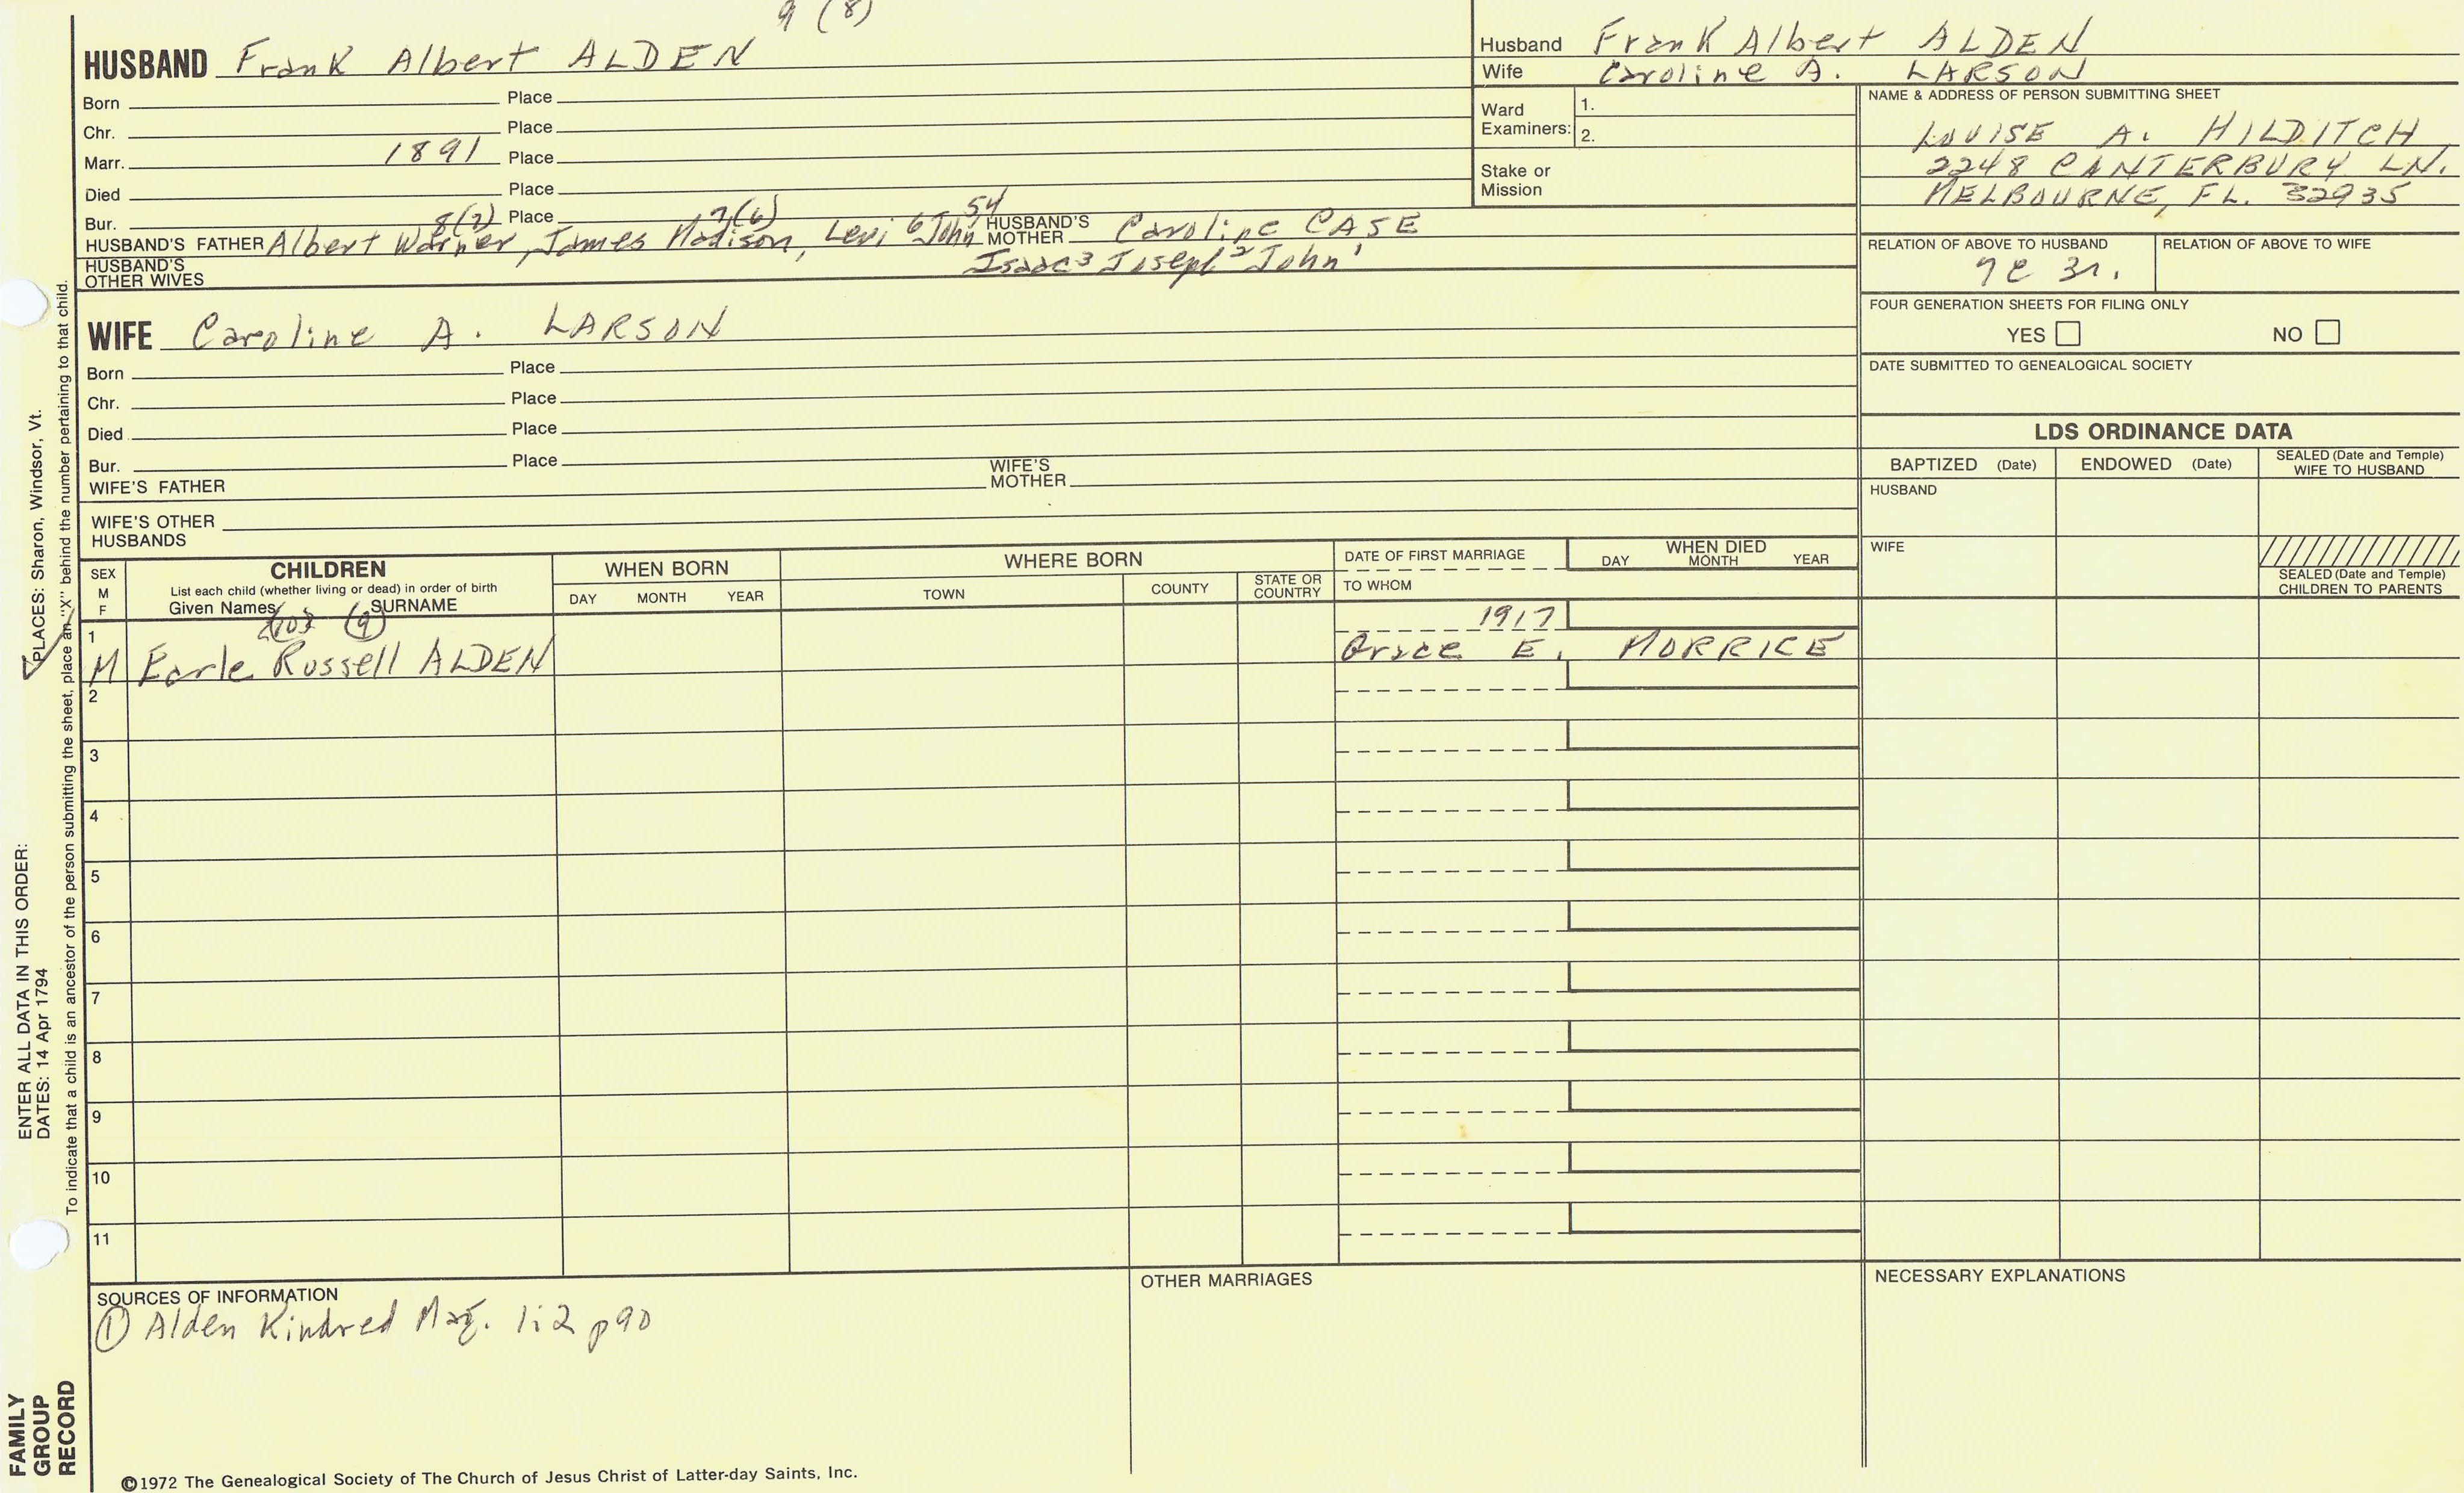 9 (8)
HUSBAND Frank Albert ALDEN
Born Place
Chr. Place
Marr. 1891 Place
Died Place
Bur. Place
8(7) 7(6) 54
HUSBAND'S FATHER Albert Warner, James Madison, Levi 6 John HUSBAND'S MOTHER Caroline CASE
HUSBAND'S OTHER WIVES Isaac 3 Joseph 2 John 1
WIFE Caroline A. LARSON
Born Place
Chr. Place
Died Place
Bur. Place
WIFE'S FATHER WIFE'S MOTHER
WIFE'S OTHER HUSBANDS
Husband Frank Albert ALDEN
Wife Caroline A. LARSON
Ward Examiners: 1.
2.
Stake or Mission
NAME & ADDRESS OF PERSON SUBMITTING SHEET
LOUISE A. HILDITCH
2248 CANTERBURY LN.
MELBOURNE, FL. 32935
RELATION OF ABOVE TO HUSBAND RELATION OF ABOVE TO WIFE
7c 3r.
FOUR GENERATION SHEETS FOR FILING ONLY
YES NO
DATE SUBMITTED TO GENEALOGICAL SOCIETY
LDS ORDINANCE DATA
BAPTIZED (Date) ENDOWED (Date) SEALED (Date and Temple) WIFE TO HUSBAND
HUSBAND
WIFE
SEALED (Date and Temple) CHILDREN TO PARENTS
SEX M F
CHILDREN
List each child (whether living or dead) in order of birth
Given Names SURNAME
WHEN BORN
DAY MONTH YEAR
WHERE BORN
TOWN COUNTY STATE OR COUNTRY
DATE OF FIRST MARRIAGE
TO WHOM
WHEN DIED
DAY MONTH YEAR
(9)
1 1917
M Earle Russell ALDEN Grace E. MORRICE
2
3
4
5
6
7
8
9
10
11
SOURCES OF INFORMATION
① Alden Kindred Mag. 1:2 p90
OTHER MARRIAGES
NECESSARY EXPLANATIONS
©1972 The Genealogical Society of The Church of Jesus Christ of Latter-day Saints, Inc.
FAMILY GROUP RECORD
ENTER ALL DATA IN THIS ORDER:
DATES: 14 Apr 1794
PLACES: Sharon, Windsor, Vt.
To indicate that a child is an ancestor of the person submitting the sheet, place an "X" behind the number pertaining to that child.